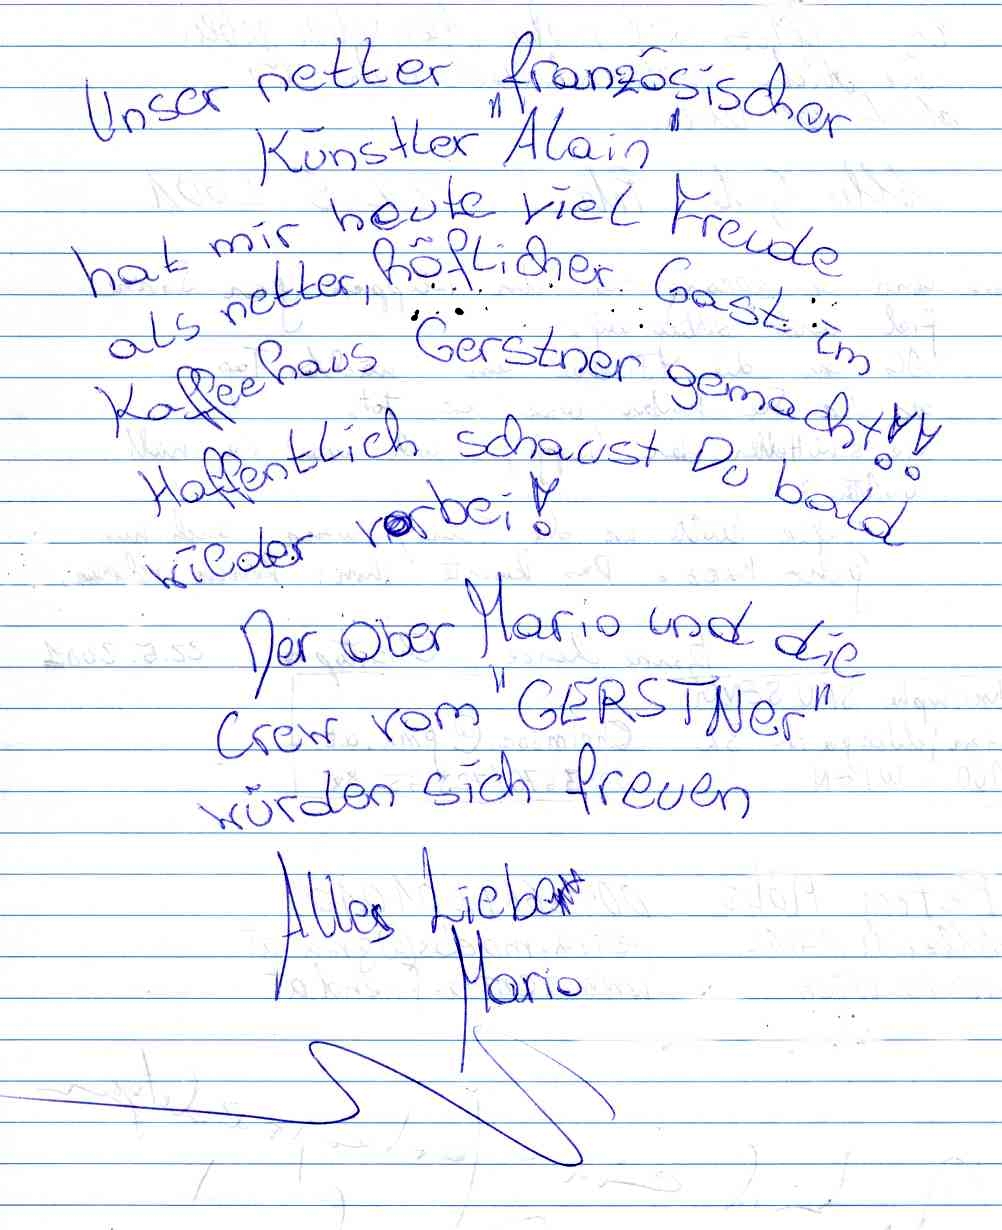 Unser netter französischer
Künstler "Alain"
hat mir heute viel Freude
als netter, höflicher Gast im
Kaffeehaus Gerstner gemacht!!
Hoffentlich schaust Du bald
wieder vorbei!
Der Ober Mario und die
Crew vom "GERSTNer"
würden sich freuen
Alles Liebe
Mario